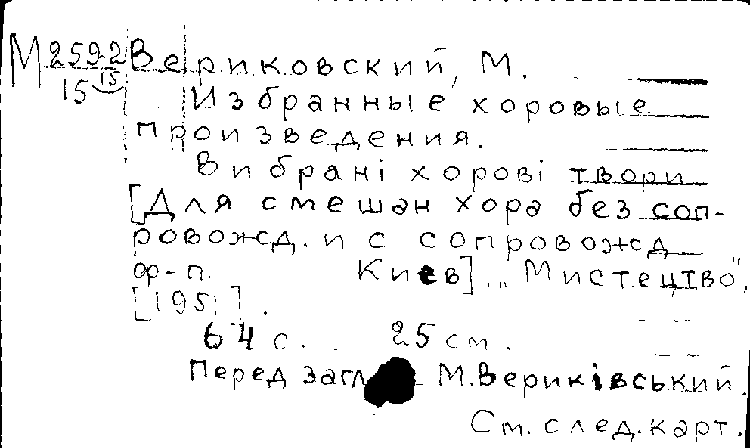 М 2592/15 15 Вериковский, М.
Избранные хоровые
произведения.
Вибрані хорові твори
[Для смешан хора без соп-
ровожд. и с сопровожд
ф-п. Киев] „Мистецтво",
[195 ] .
64 с. 25 см.
Перед загл. М.Вериківський.
См. след. карт.